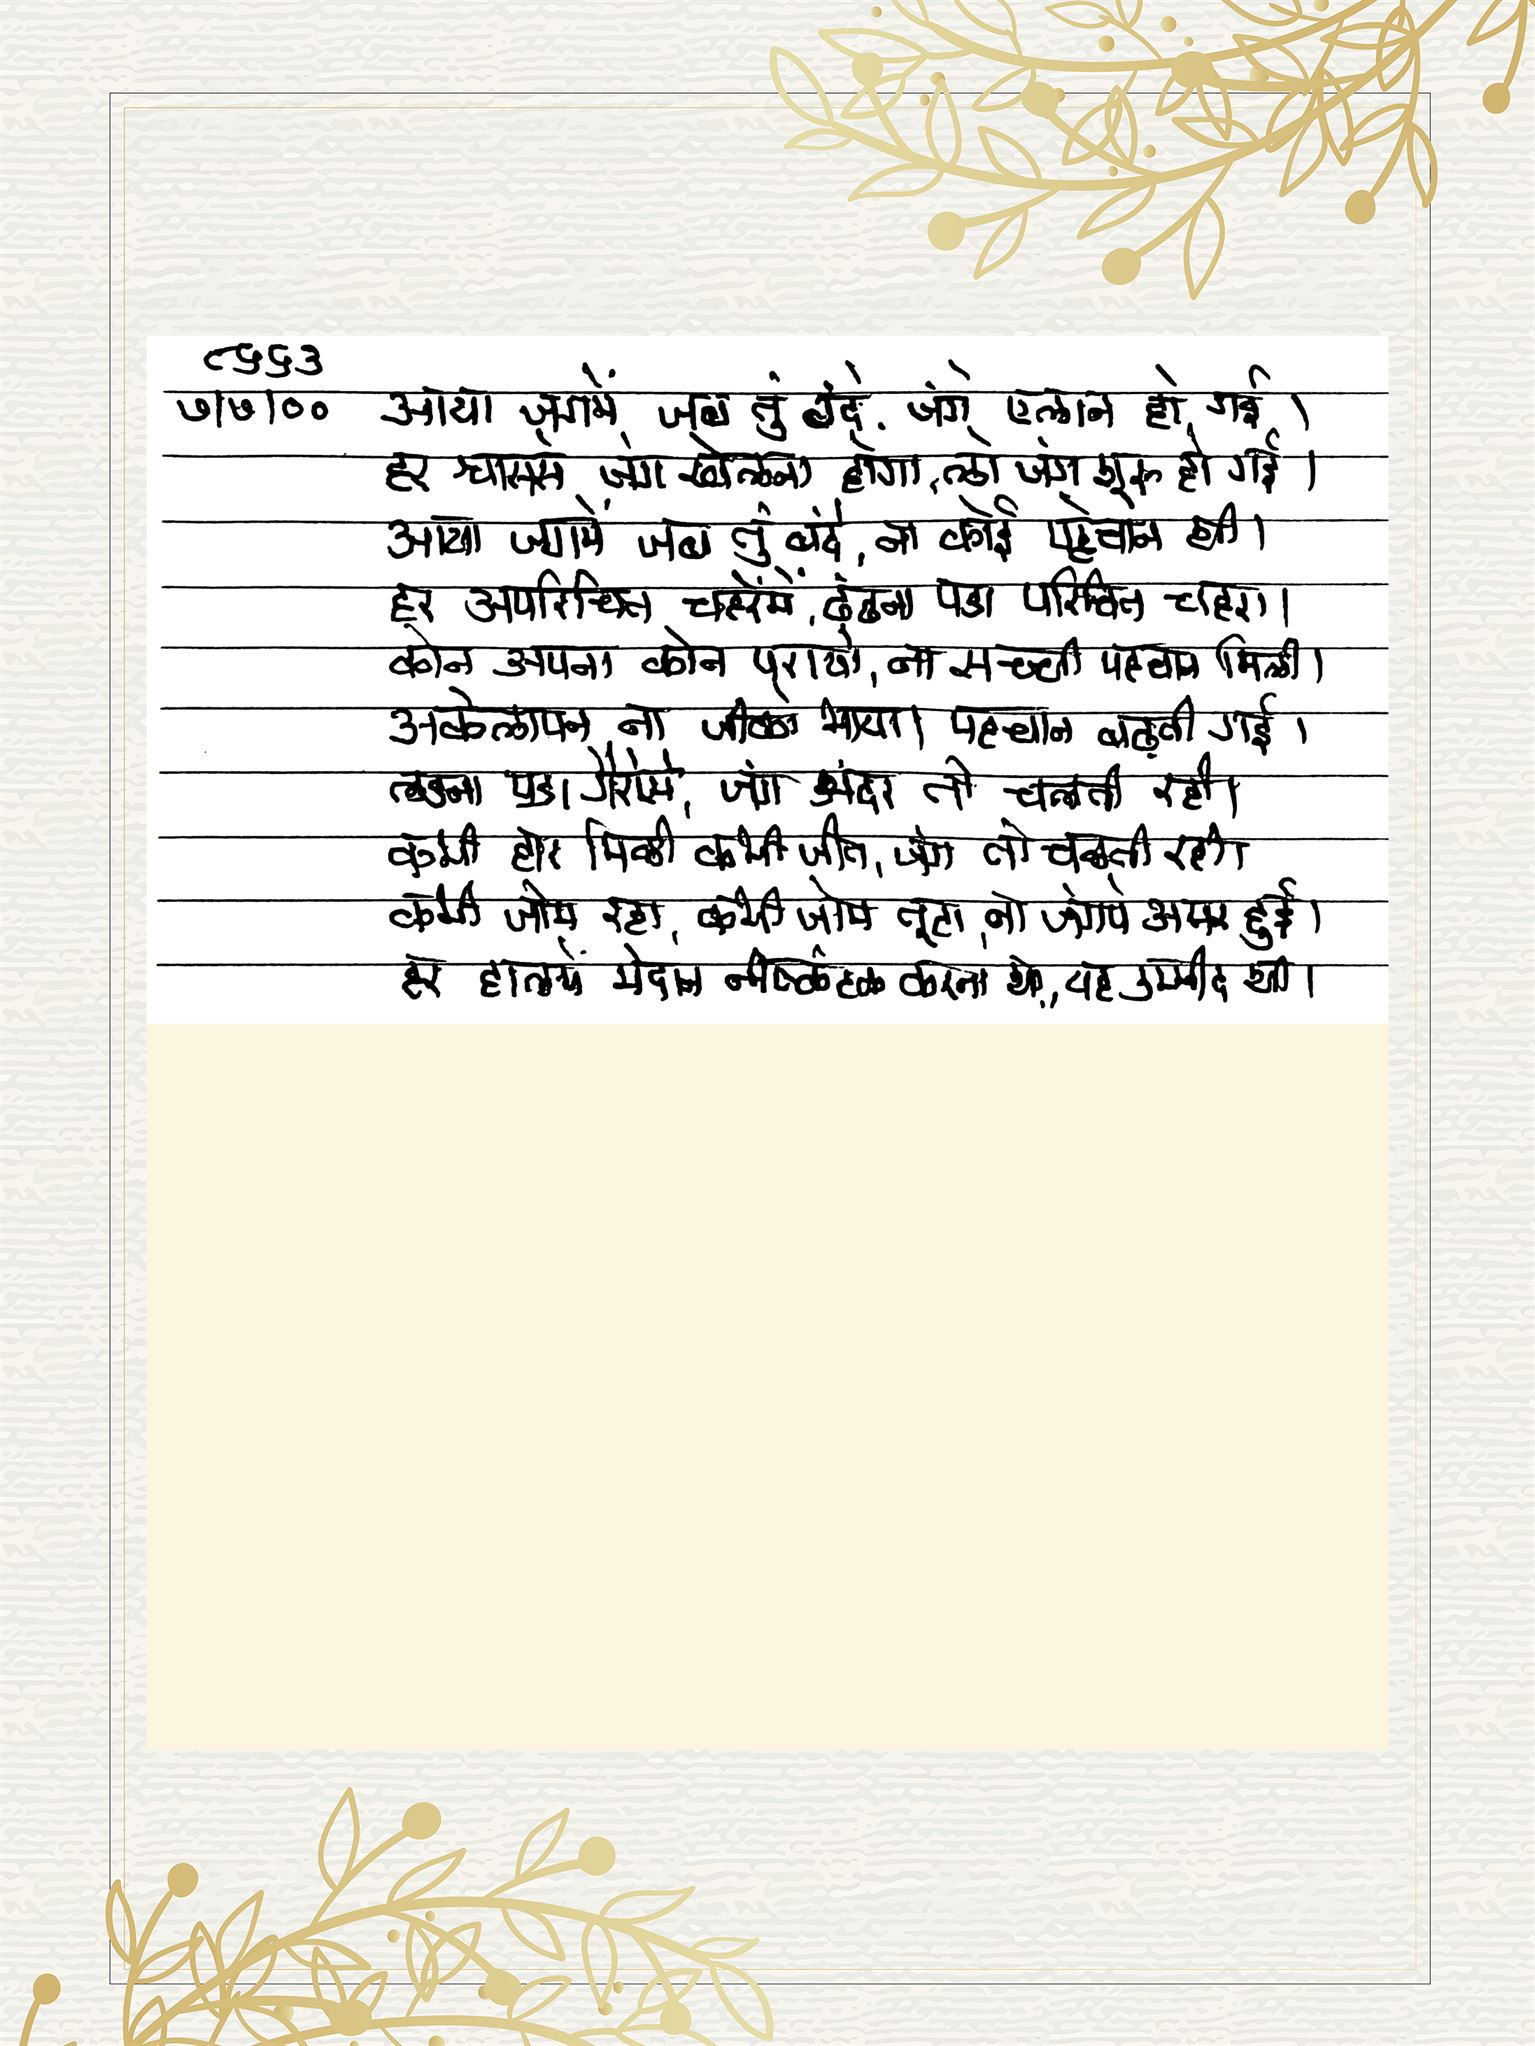 ८५५३
७/७/०० आया जगमें जब तुं बंदे, जंगे एलान हो गई ।
हर श्वाससे जंग खेलना होगा, लो जंग शुरू हो गई ।
आया जगमें जब तुं बंदे, ना कोई पहेचान थी ।
हर अपरिचित चहेरेमें, ढूंढना पडा परिचित चहेरा ।
कोन अपना कोन पराया, ना सच्ची पहचान मिली ।
अकेलापन ना जीवको भाया । पहचान बढ़ती गई ।
लडना पडा गैरोंसे, जंग अंदर तो चलती रही ।
कभी हार मिली कभी जीत, जंग तो चलती रही ।
कभी जोम रहा, कभी जोम तूटा, ना जंगपे असर हुई ।
हर हालमें मेदान नीष्कंटक करना था, यह उम्मीद थी ।